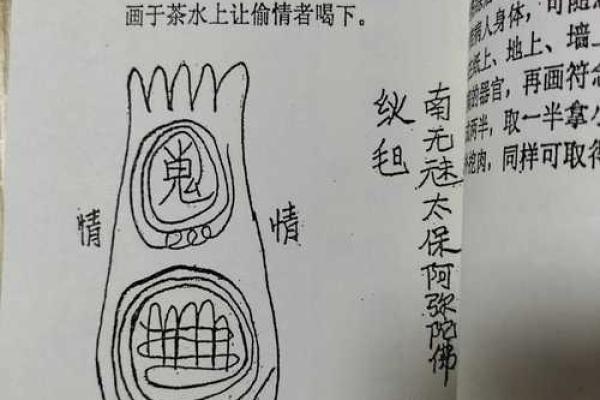 画于茶水上让偷情者喝下。
情
情
南无
太保阿弥陀佛
人身体，可随
纸上、地上、墙
的器官，再画符念
两半，取一半拿
挖肉，同样可取得